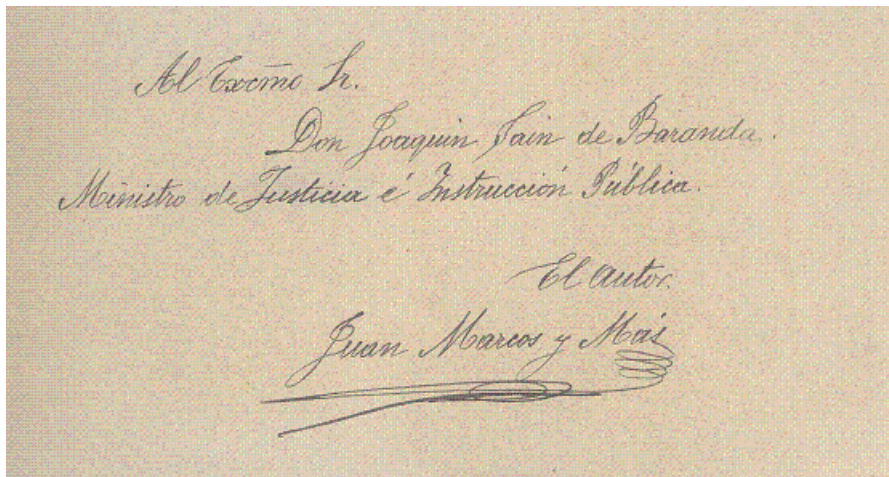 Al Excmo Sr.
Don Joaquin Sain de Baranda.
Ministro de Justicia é Instrucción Pública.
El autor.
Juan Marcos y Más